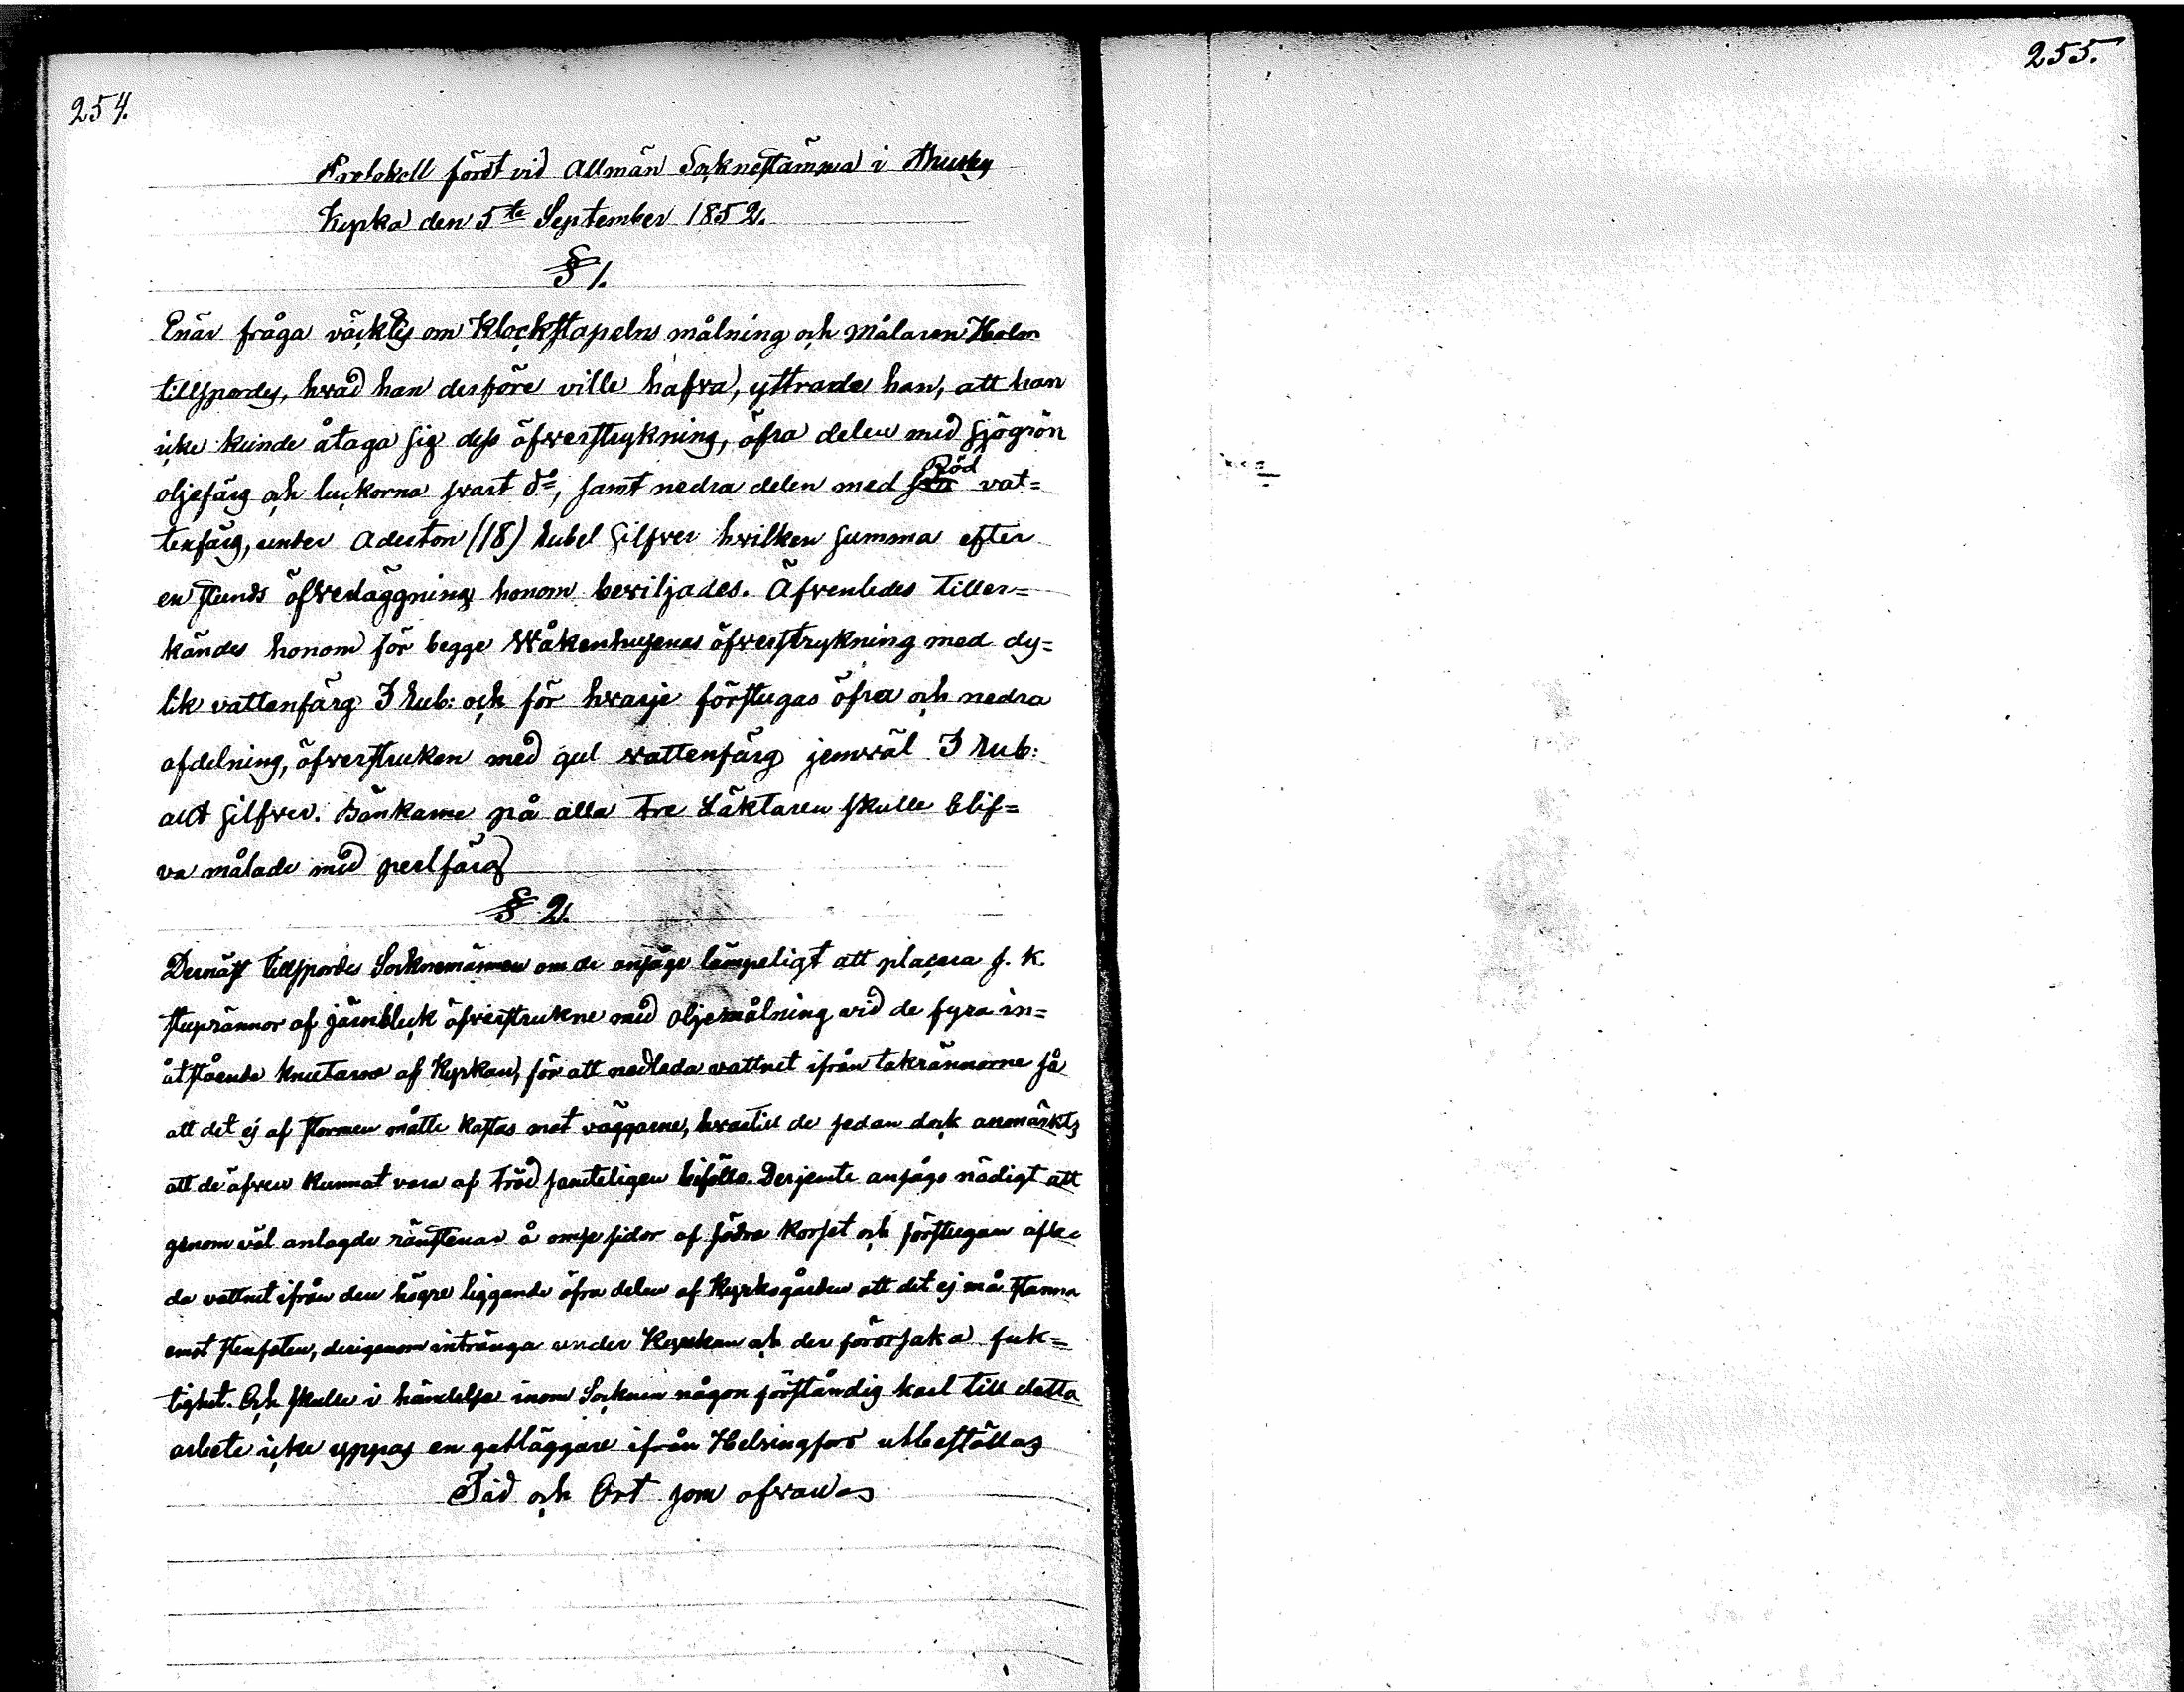 254.
Protokoll fördt vid Allmän Socknestämma i Thusby
Kyrka den 5te September 1852.
§ 1.
Enär frågaväcktes om Klockstapelns målning och målaren Holm
tillspordes, hvad han derföre ville hafva, yttrade han, att han
icke kunde åtaga sig dess öfverstrykning, öfra delen med sjögrön
oljefärg och luckorna svart do, samt nedra delen med Röd vat=
tenfärg, under Aderton (18) Rubel Silfver hvilken summa efter
en stunds öfverläggning honom beviljades. Äfvenledes Tiller=
kändes honom för begge Wåkenhusenas öfverstrykning med dy=
lik vattenfärg 3 Rub: och för hvarje förstugas öfra och nedra
afdelning, öfverstruken med gul vattenfärg jemväl 3 Rub:
allt Silfver. Bänkarne på alla tre Läktaren skulle blif=
va målade med perlfärg
§ 2.
Dernäst tillspordes Socknemännen om de ansågo lämpeligt att placera s. k.
stuprännor af järnbleck öfverstrukne med oljemålning vid de fyra in=
åtstående knutarne af Kyrkan, för att nedleda vattnet ifrån takrännorne så
att det ej af stormen måtte kastas mot väggarne, hvartill de sedan dock anmärkts
att de äfven kunnat vara af Träd samteligen biföllo. Derjemte ansågs nödigt att
genom väl anlagde rännstenar å ömse sidor af södra korset och förstugan afle=
da vattnet ifrån den högre liggande öfra delen af Kyrkogården att det ej må stanna
emot stenfoten, derigenom intränga under Kyrkan och der förorsaka fuk=
tighet. Och skulle i händelse inom Socknen någon förståndig karl till detta
arbete icke yppas en gatläggare ifrån Helsingfors utbeställas
Tid och Ort som ofvan
255.